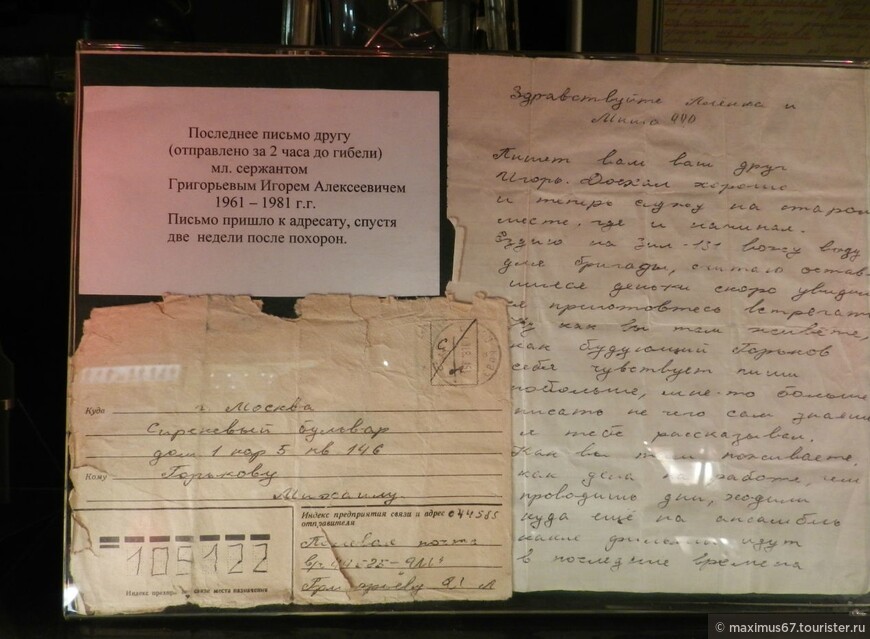 Последнее письмо другу
(отправлено за 2 часа до гибели)
мл. сержантом
Григорьевым Игорем Алексеевичем
1961 – 1981 г.г.
Письмо пришло к адресату, спустя
две недели после похорон.
Куда г. Москва
Сиреневый бульвар
дом 1 кор 5 кв 146
Кому Горькову
Михаилу
Индекс предприятия связи и адрес
отправителя
Полевая почта
105122
Индекс места назначения
Здравствуйте и
Миша
Пишет вам ваш друг
Игорь. Доехал хорошо
и теперь служу на старом
месте, где и начинал.
Зил-131 вожу воду
для бригады, считаю остав-
шиеся скоро увидим
приготовтесь встречать
как вы там живёте,
как будующий Горьков
себя чувствует пиши
побольше, мне-то больше
писать не чего сам знаешь
я тебе рассказывал.
Как вы там поживаете.
как дела на работе, чем
проводишь дни, ходили
куда ещё на ансамбль
какие идут
в последние времена
© maximus67.tourister.ru